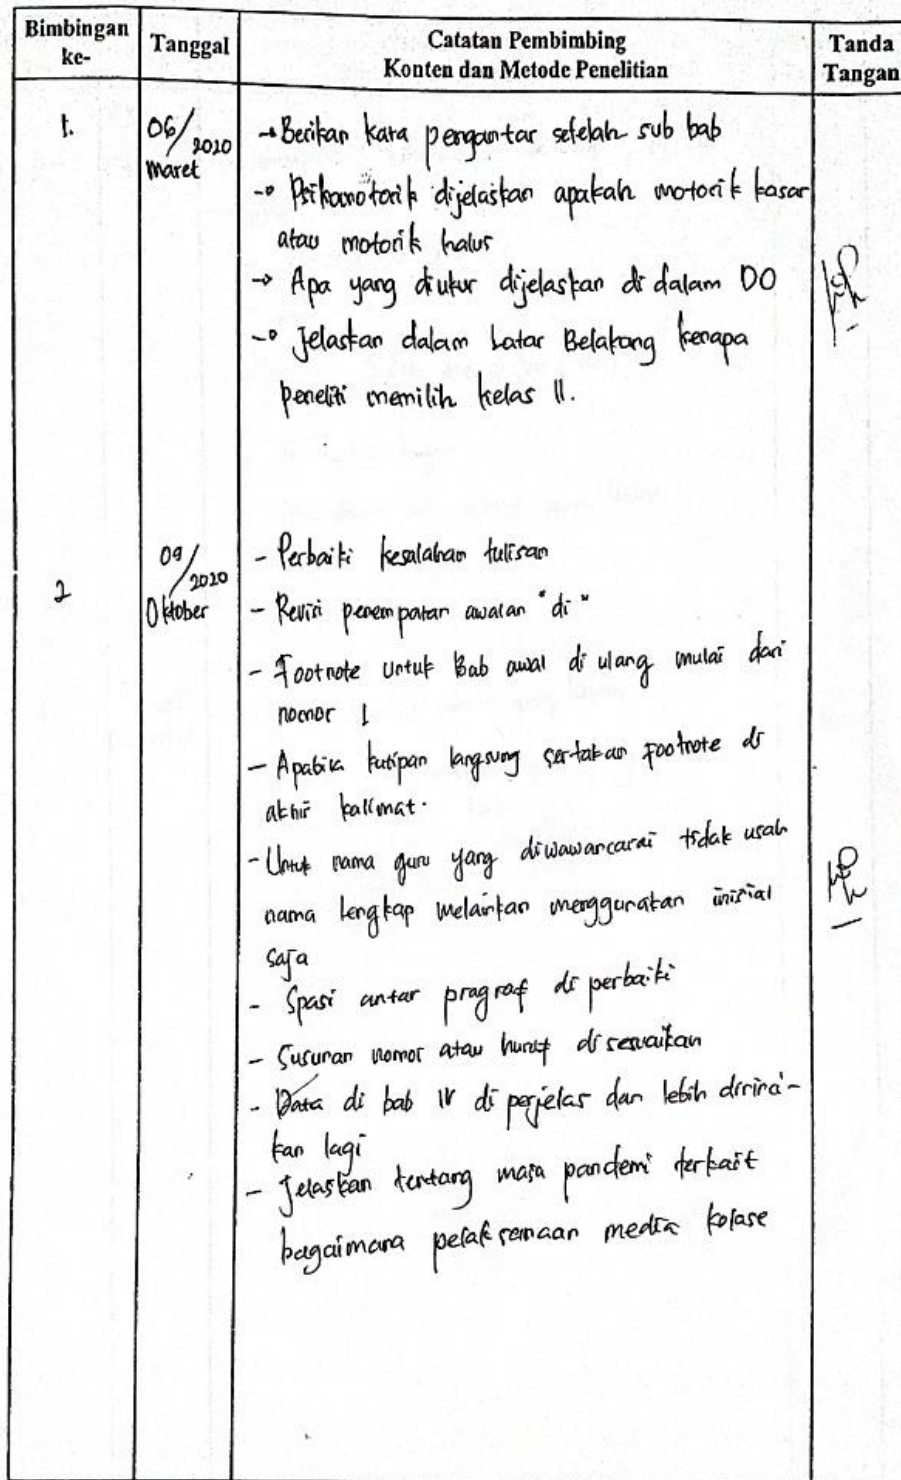 Bimbingan ke-
Tanggal
Catatan Pembimbing
Konten dan Metode Penelitian
Tanda Tangan
1.
06/2020
Maret
→ Berikan kata pengantar setelah sub bab
→ Psikomotorik dijelaskan apakah motorik kasar
atau motorik halus
→ Apa yang diukur dijelaskan di dalam DO
→ Jelaskan dalam Latar Belakang kenapa
peneliti memilih kelas II.
2
09/2020
Oktober
- Perbaiki kesalahan tulisan
- Revisi penempatan awalan "di"
- Footnote untuk Bab awal di ulang mulai dari
nomor 1
- Apabila kutipan langsung sertakan footnote di
akhir kalimat.
- Untuk nama guru yang diwawancarai tidak usah
nama lengkap melainkan menggunakan inisial
saja
- Spasi antar pragraf di perbaiki
- Susunan nomor atau huruf di sesuaikan
- Data di bab IV di perjelas dan lebih dirinci-
kan lagi
- Jelaskan tentang masa pandemi terkait
bagaimana pelaksanaan media kolase